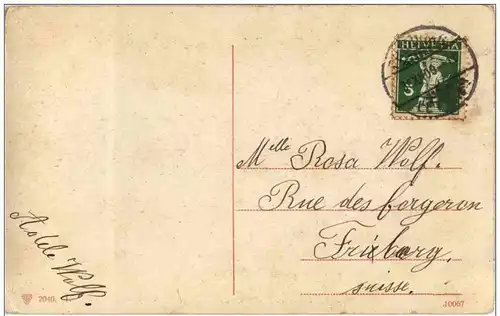 HELVETIA
5
Mlle Rosa Wolf.
Rue des forgeron
Friborg,
suisse.
Adele Wolf.
2040.
10067